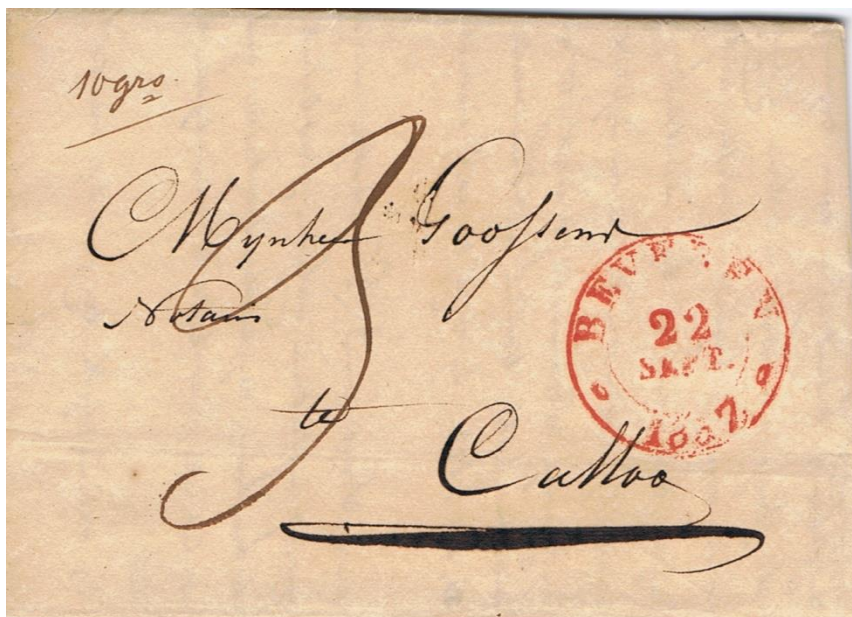 10 grs
3
Mynheer Goossens
Notaris
te
Calloo
BEVEREN
22
SEPT.
1837